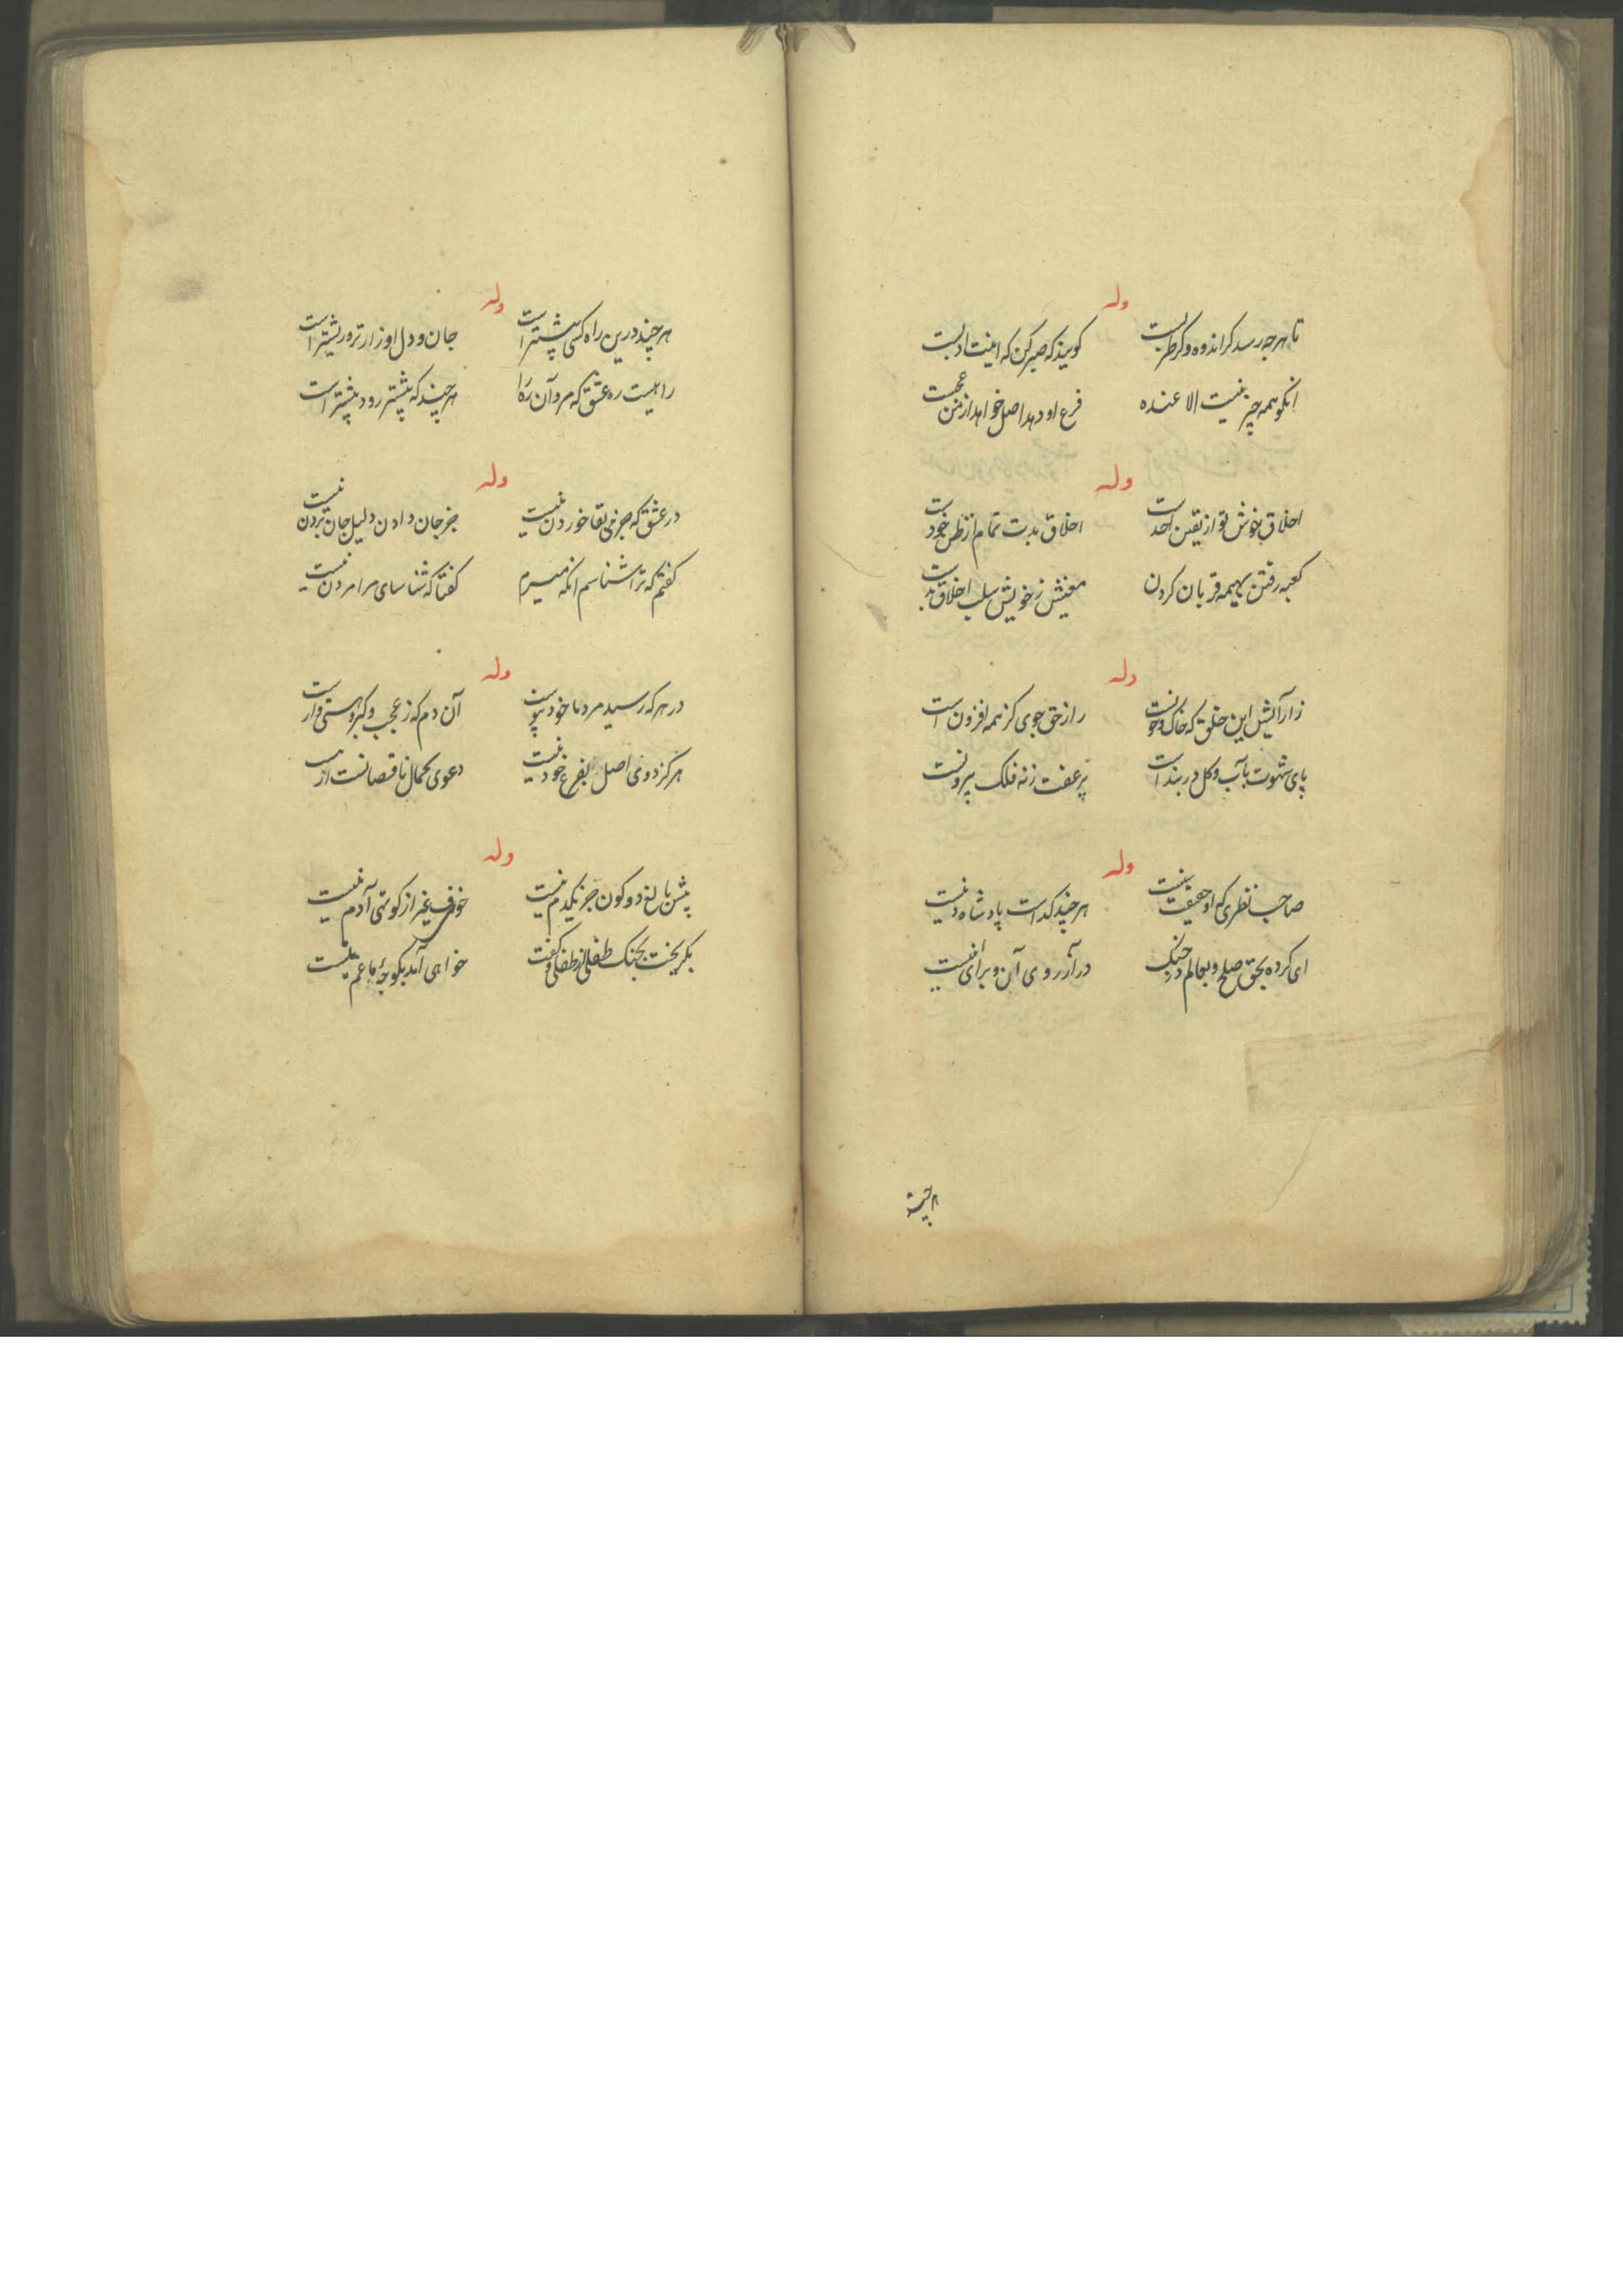 وله
تا هرچه رسد کر اندوه وکر طربست کویند که صبر کن که اینت ادبست
انکو همه چیز نیست الا عنده فرع او دهد اصل خواهد از من عجبست
وله
اخلاق خوش تو از یقین احد است اخلاق بدت تمام از ظن خود است
کعبه رفتن بهیمه قربان کردن معنیش ز خویش سلب اخلاق بد است
وله
زارآلیش این خلق که خاک وخونست راز حق جوی کز همه افزون است
پای شهوت بآب وکل در بند است پر عفت ز نه فلک بیرونست
وله
صاحب نظری که او حقیقت بینست هر چند کداست پادشاه دینست
ای کرده بحق صلح وبعالم در جنک در آرزوی آن وبرای اینست
هر چند
وله
هر چند درین راه کسی پیشتر است جان و دل او زارتر وریشتر است
راهیست ره عشق که مرد آن ره را هر چند که پیشتر رود بیشتر است
وله
در عشق که جز می بقا خوردن نیست جز جان دادن دلیل جان بردن نیست
کفتم که ترا شناسم انکه میرم کفتا که شناسای مرا مردن نیست
وله
در هر که رسید مرد ما خود نیوست آن دم که ز عجب وکبر وهستی وارست
هرکز دوی اصل بفرع خود نیست دعوی کمال ناقصانست از
وله
پیش بالغ دو کون جز یکدم نیست خوف غیر از کوتهی آدم نیست
بکریخت بجنک طفلی از طفلی وکفت خواهی آمد بکوچهٔ ما غم نیست